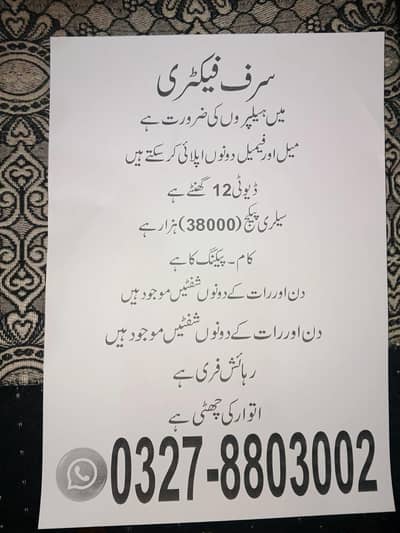 سرف فیکٹری
میں ہیلپروں کی ضرورت ہے
میل اور فیمیل دونوں اپلائی کر سکتے ہیں
ڈیوٹی 12 گھنٹے ہے
سیلری پیکج (38000) ہزار ہے
کام۔ پیکنگ کا ہے
دن اور رات کے دونوں شفٹیں موجود ہیں
دن اور رات کے دونوں شفٹیں موجود ہیں
رہائش فری ہے
اتوار کی چھٹی ہے
0327-8803002